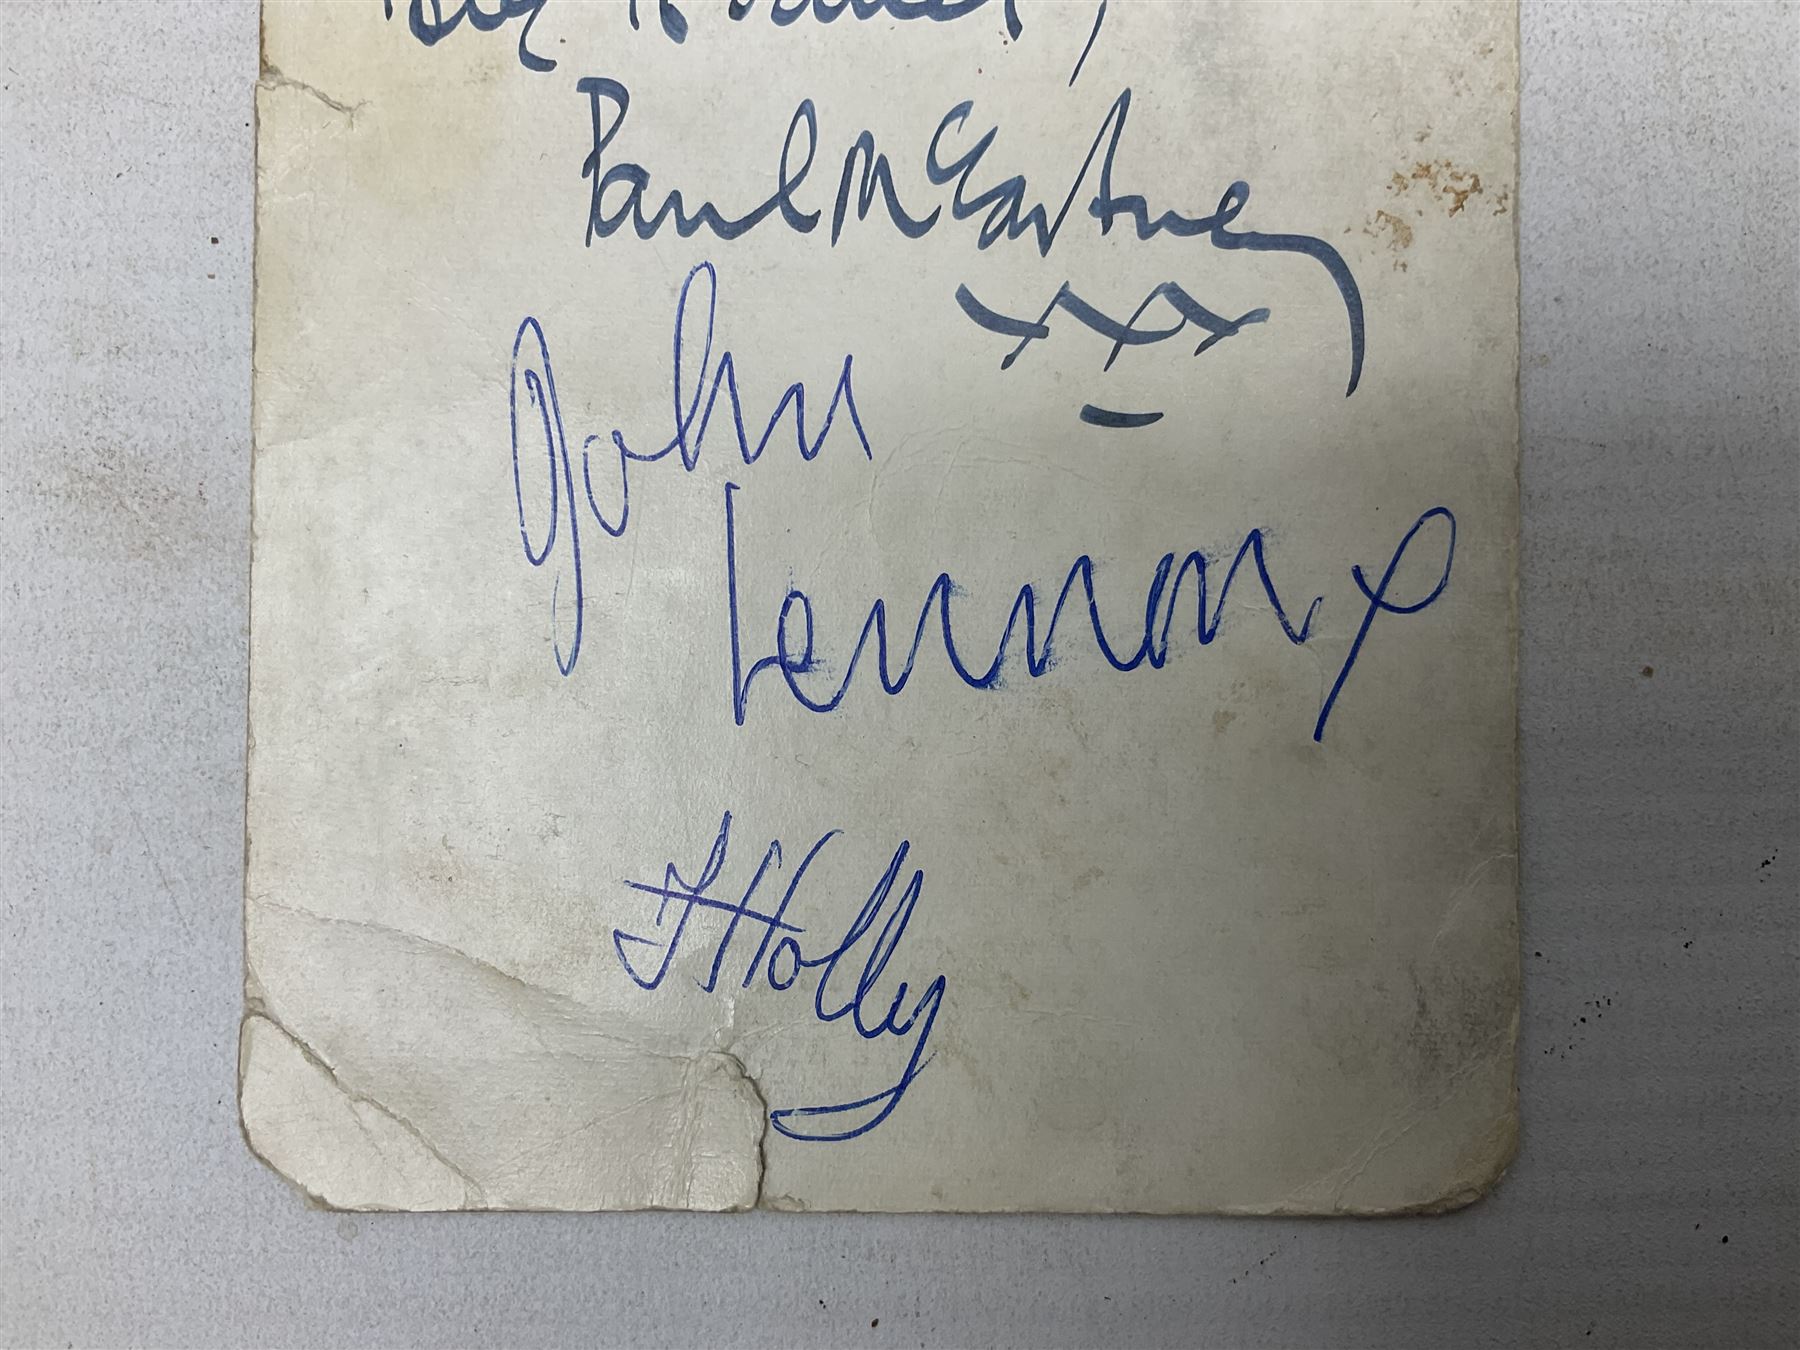 Paul McCartney
xxx
John
Lennon x
J Holly